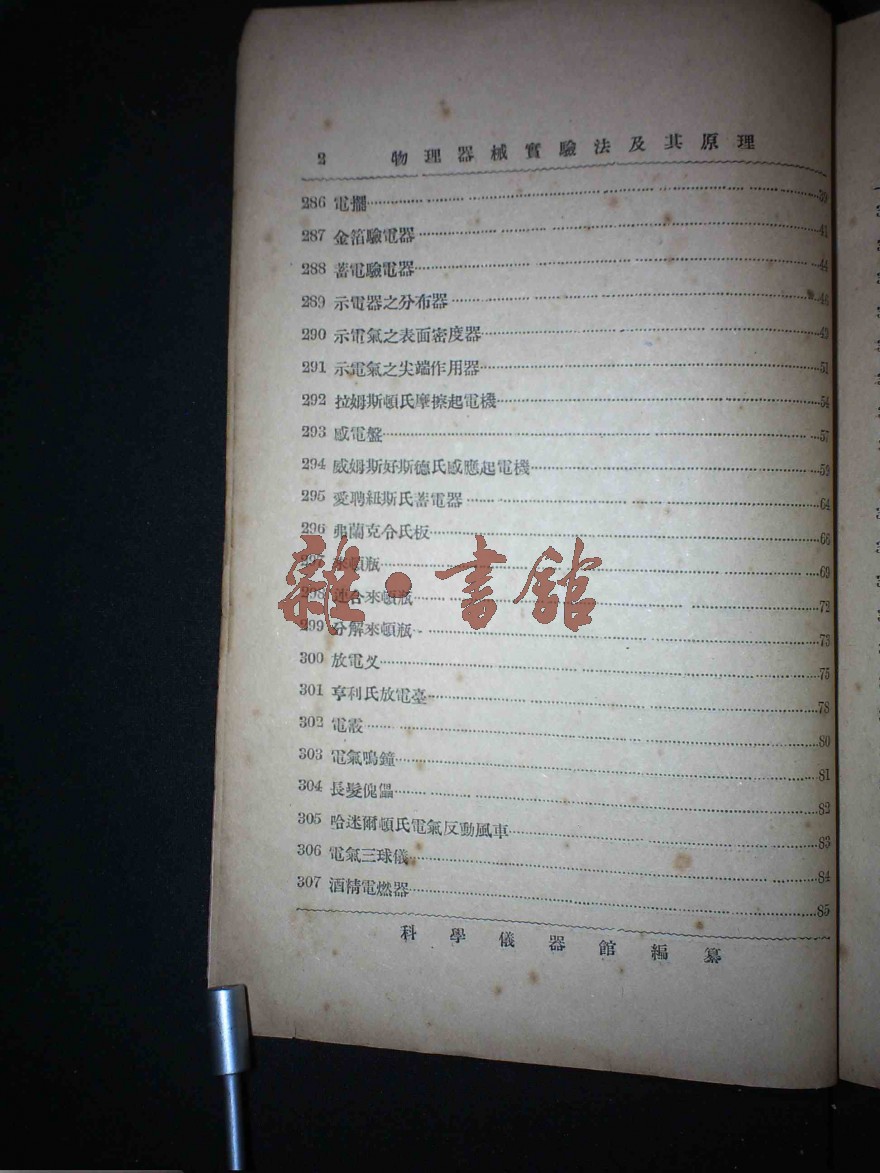 2 物理器械實驗法及其原理
286 電擺 39
287 金箔驗電器 41
288 蓄電驗電器 44
289 示電器之分布器 46
290 示電氣之表面密度器
291 示電氣之尖端作用器 51
292 拉姆斯頓氏摩擦起電機 54
293 感電盤 57
294 威姆斯好斯德氏感應起電機 59
295 愛聘紐斯氏蓄電器 64
296 弗蘭克令氏板 66
297 來頓瓶 69
298 連合來頓瓶 72
299 分解來頓瓶 73
300 放電叉 75
301 亨利氏放電臺 78
302 電叢 80
303 電氣鳴鐘 81
304 長髮傀儡 82
305 哈迷爾頓氏電氣反動風車 83
306 電氣三球儀 84
307 酒精電燃器 85
科學儀器館編纂
雜·書館